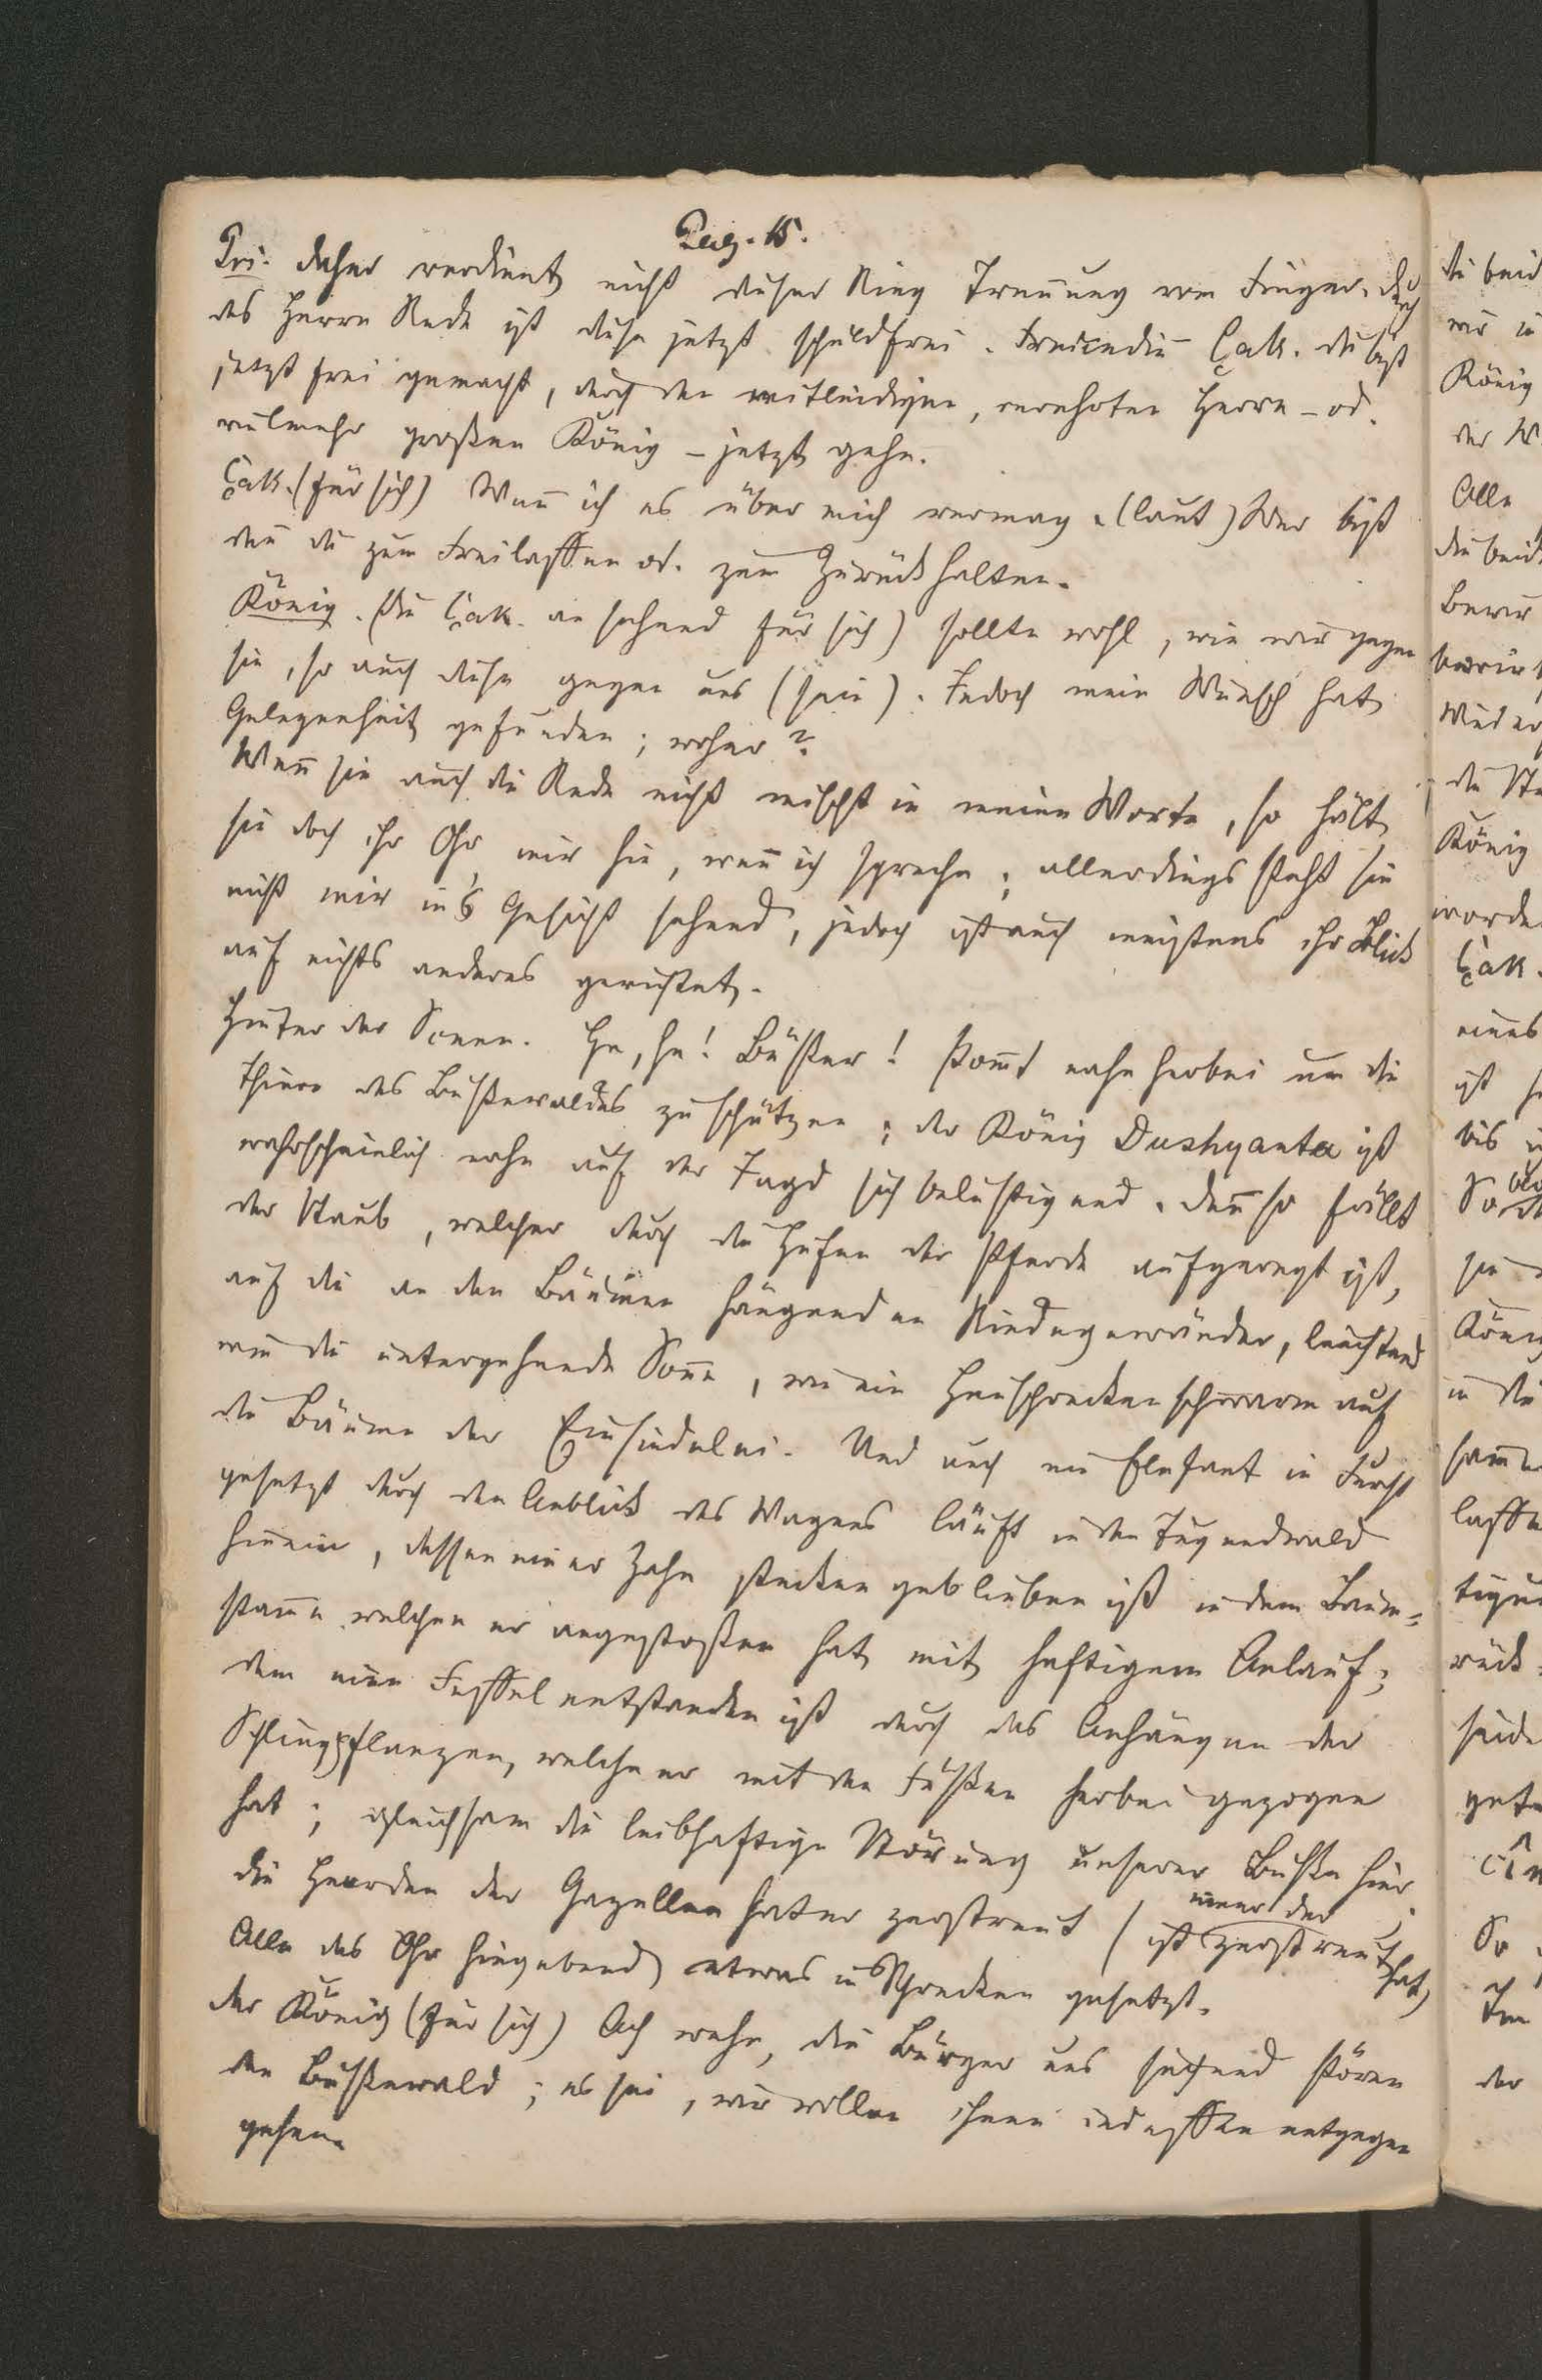 Pag. 15.
Pri. daher verdient nicht dieser Ring Trennung vom Finger. durch
des Herrn Rede ist diese jetzt schuldfrei. Freundin Çak. du bist
jetzt frei gemacht, durch den mitleidigen, verehrten Herrn – od.
vielmehr großen König – jetzt gehe.
Çak. (für sich) Wenn̄ ich es über mich vermag. (laut) Wer bist
den̄ du zum Freilassen od. zum Zurückhalten.
König. (die Çak. ansehend für sich) sollte wohl, wie wir gegen
sie, so auch diese gegen uns (sein). Jedoch mein Wunsch hat
Gelegenheit gefunden; woher?
Wen̄ sie auch die Rede nicht mischt in meine Worte, so hält
sie doch ihr Ohr mir hin, wen̄ ich spreche; allerdings steht sie
nicht mir in's Gesicht sehend, jedoch ist auch meistens ihr Blick
auf nichts anderes gerichtet.
Hinter der Scene. He, he! Büßer! kom̄t nahe herbei um die
Thiere des Bußewaldes zu schützen; der König Dushyanta ist
wahrscheinlich nahe auf der Jagd sich belustigend. den̄ so fällt
der Staub, welcher durch die Hufen der Pferde aufgeregt ist,
auf die an den Bäumen hängenden Rindegewänder, leuchtend
wie die untergehende Son̄e, wie ein Heuschreckenschwarm auf
die Bäume der Einsiedelei. Und auch ein Elefant in Furcht
gesetzt durch den Anblick des Wagens läuft in den Tugendwald
hinein, dessen einer Zahn stecken geblieben ist in dem Baum-
stam̄e welchen er angestoßen hat mit heftigem Anlauf;
dem eine Fessel entstanden ist durch das Anhängen der
Schlingpflanzen, welche er mit den Füßen herbei gezogen
hat; gleichsam die leibhaftige Störung unserer Buße hier
die Heerden der Gazellen hat er zerstreut (ist zerstreut hat)
Alle das Ohr hingebend etwas in Schrecken gesetzt.
der König (für sich) Ach wehe, die Bürger uns suchend stören
den Bußewald; es sei, wir wollen ihnen indessen entgegen
gehen.